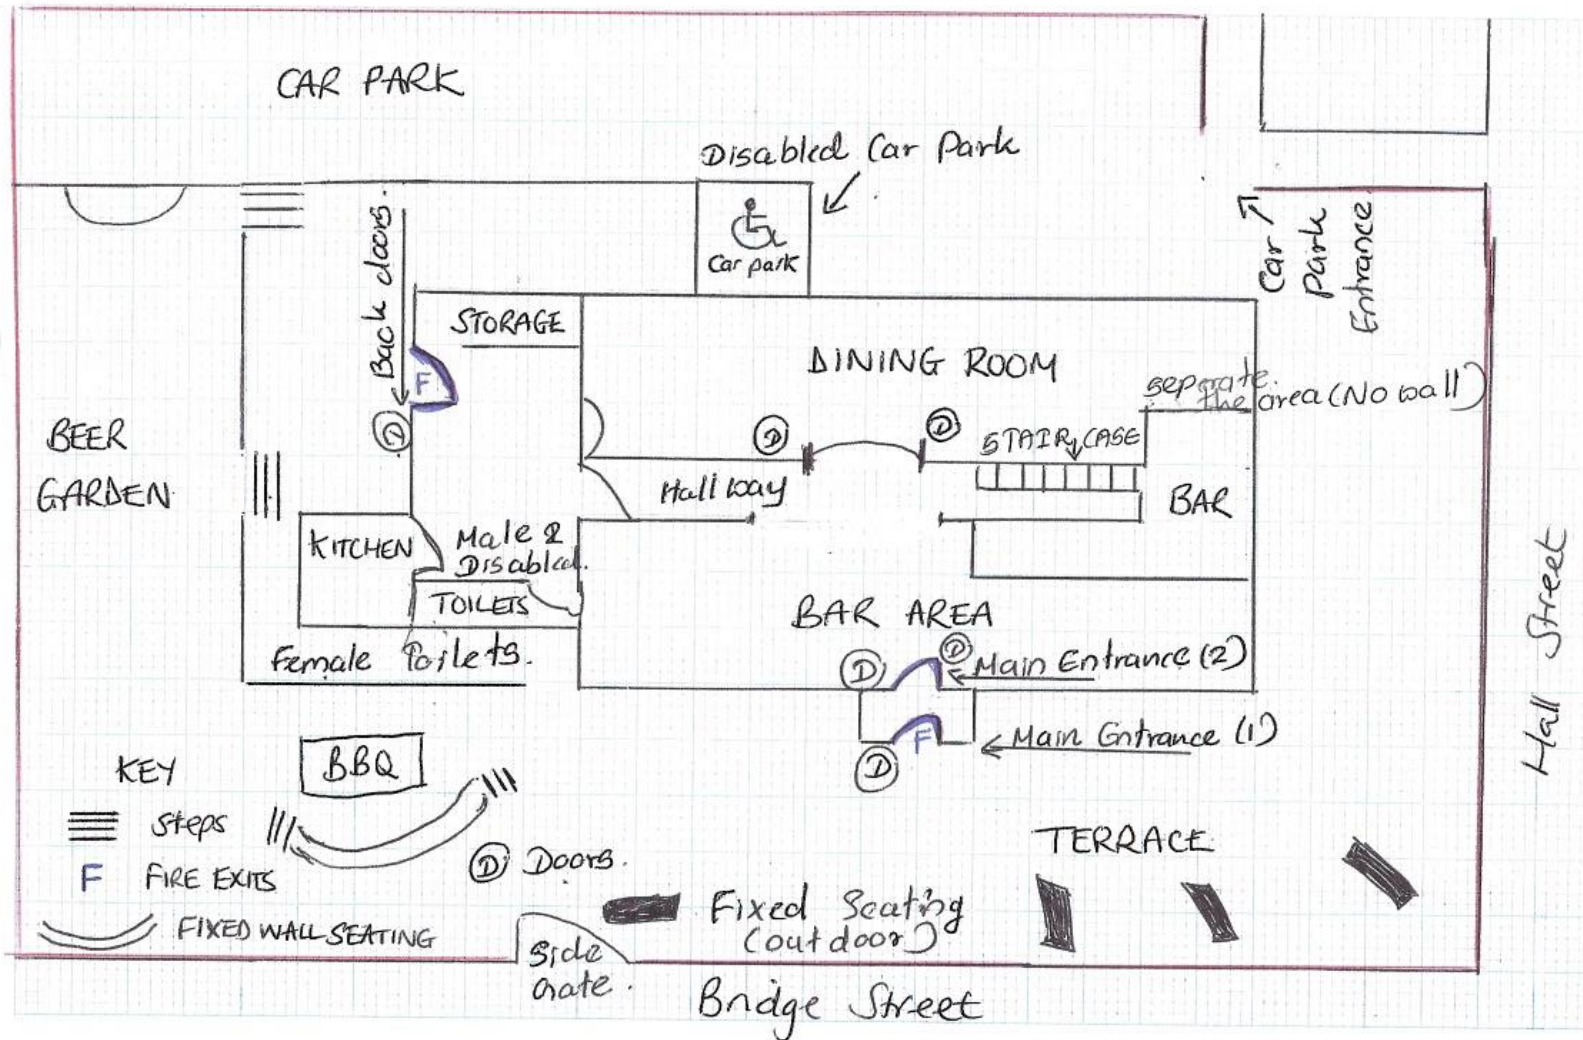 CAR PARK
Disabled Car Park
Car park
Car
Park
Entrance
Back doors.
STORAGE
F
D
DINING ROOM
seperate.
the area (No wall)
D
D
STAIR CASE
BEER
GARDEN
Hallway
BAR
KITCHEN
Male &
Disabled.
TOILETS
Female Toilets.
BAR AREA
D
D
Main Entrance (2)
F
Main Entrance (1)
D
Hall Street
BBQ
KEY
Steps
F FIRE EXITS
FIXED WALL SEATING
D Doors.
Fixed Seating
(outdoor)
TERRACE
Side
Gate.
Bridge Street